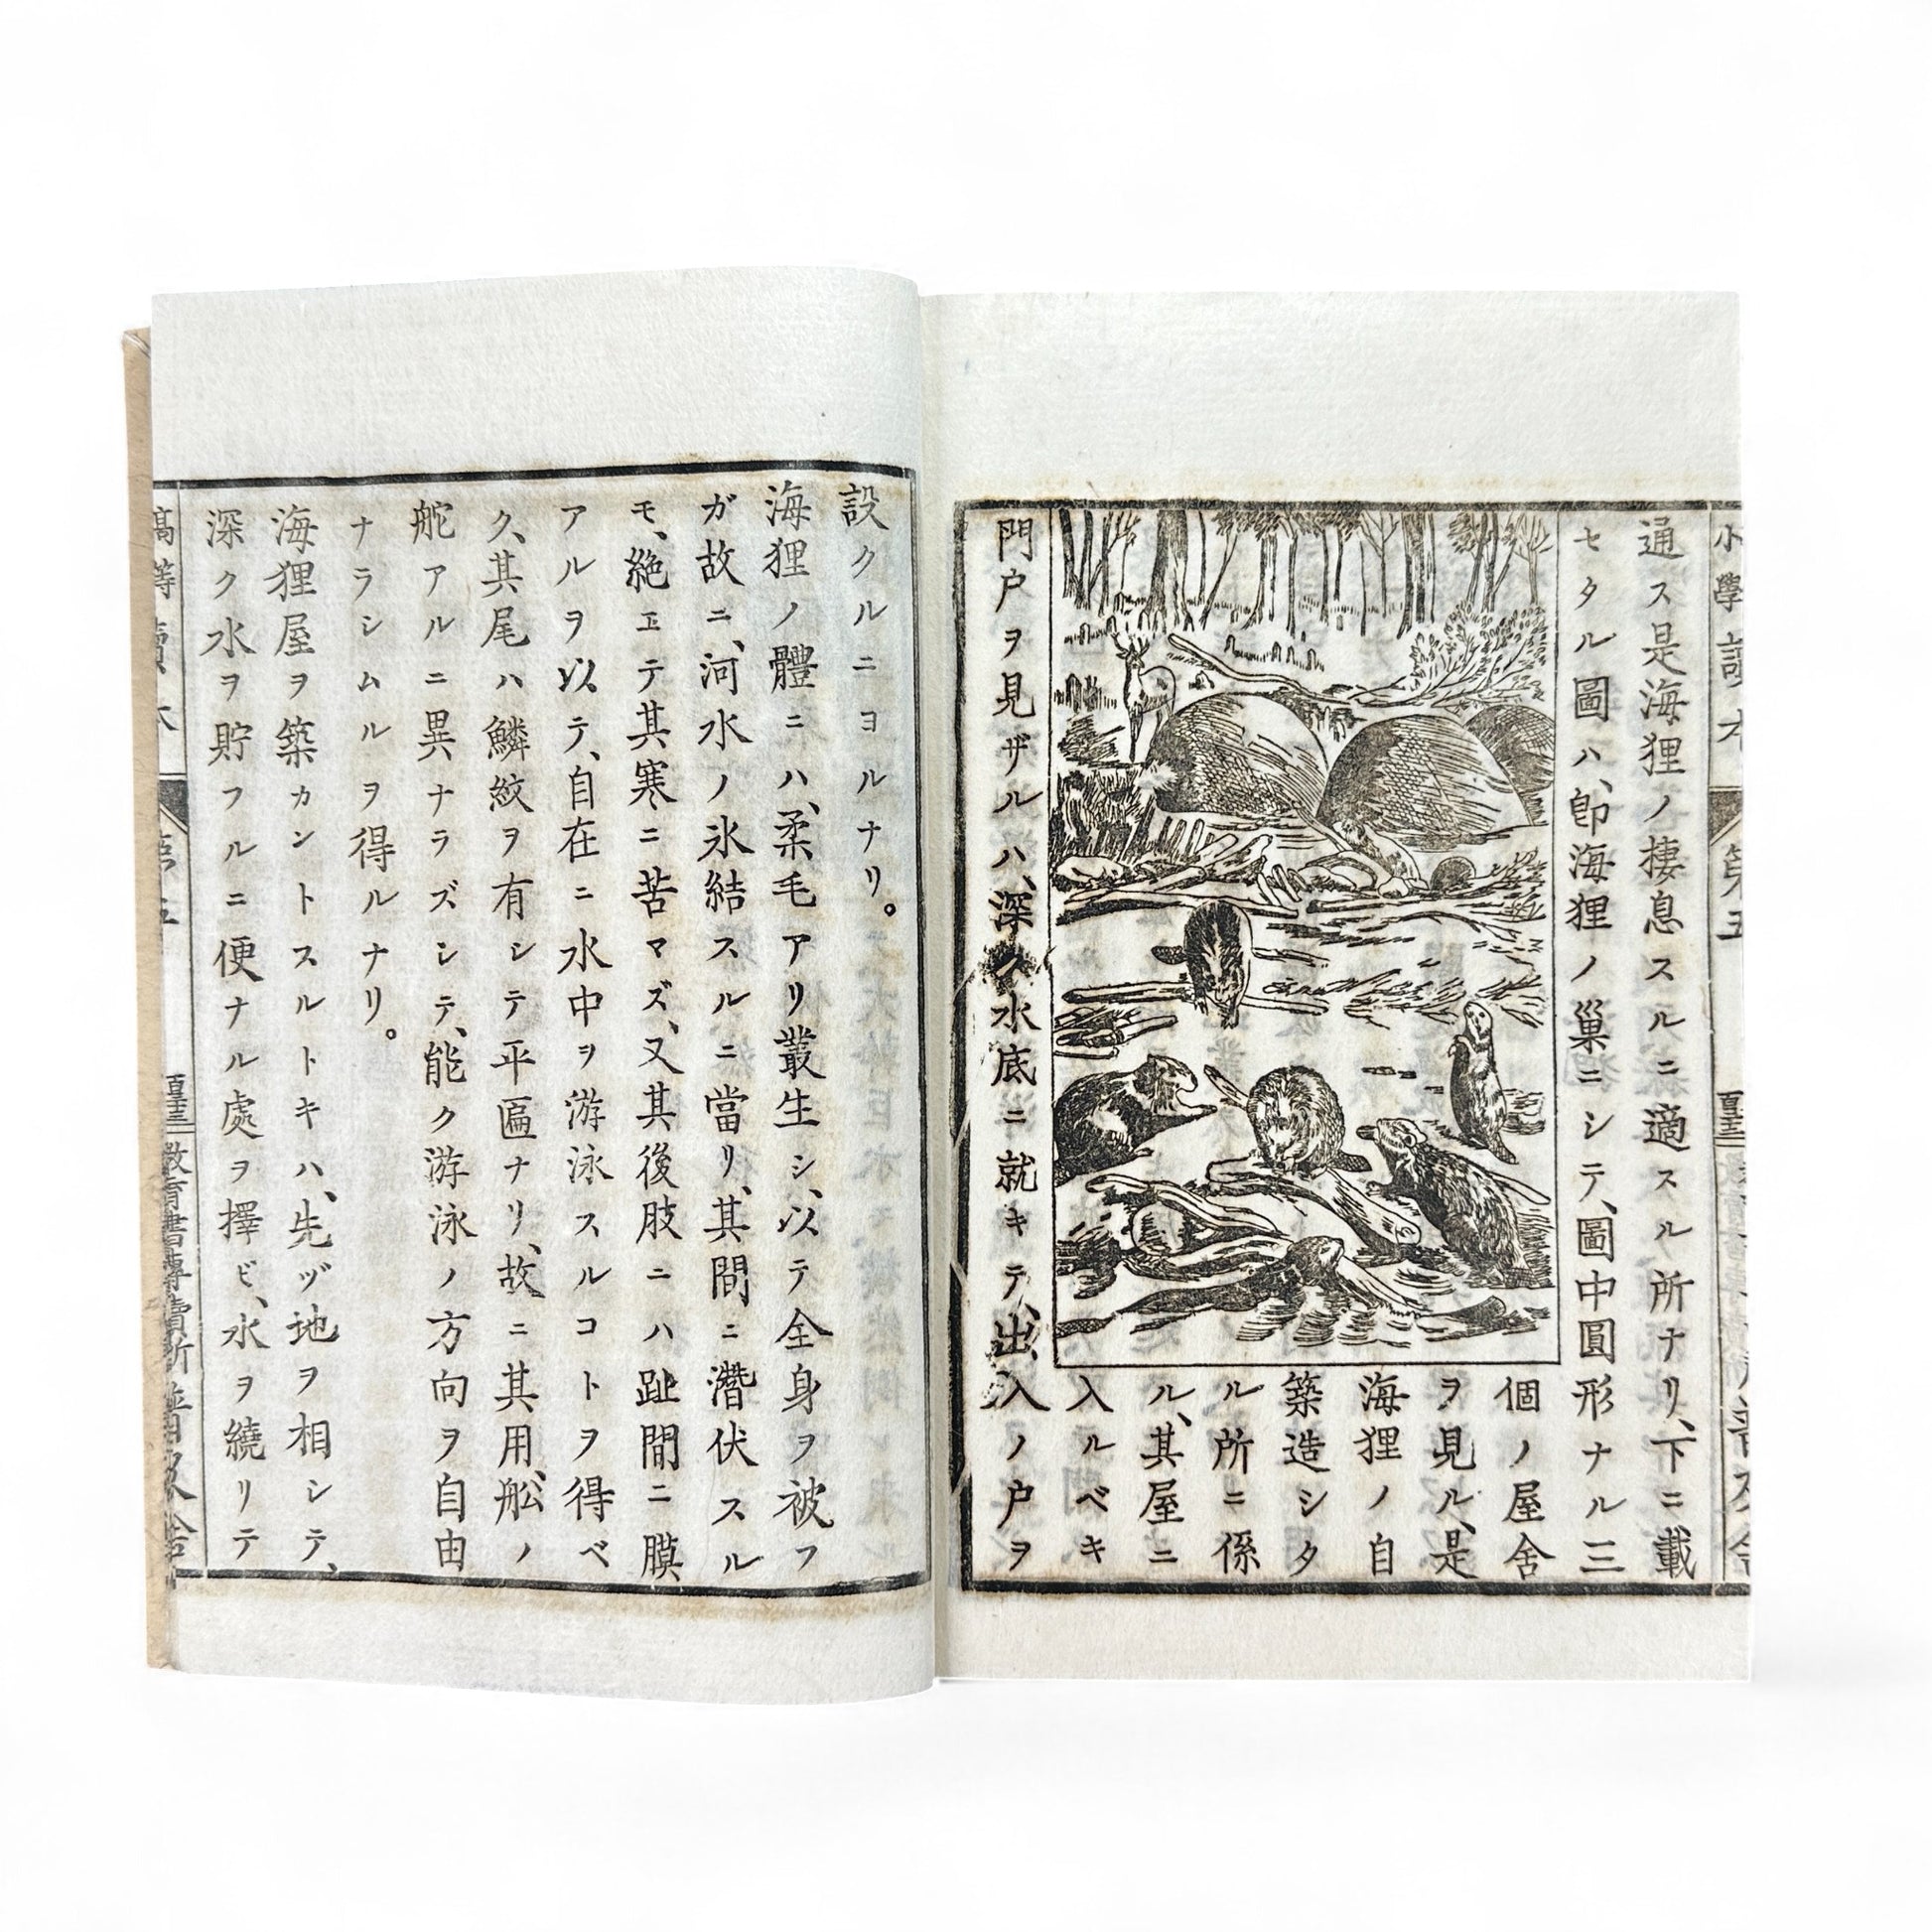 通ス是海狸ノ棲息スルニ適スル所ナリ、下ニ載
セタル圖ハ、卽海狸ノ巢ニシテ、圖中圓形ナル三
個ノ屋舍
ヲ見ル、是
海狸ノ自
築造シタ
ル所ニ係
ル、其屋ニ
入ルベキ
門戸ヲ見ザルハ、深ク水底ニ就キテ、出入ノ戸ヲ
設クルニヨルナリ。
海狸ノ體ニハ、柔毛アリ叢生シ、以テ全身ヲ被フ
ガ故ニ、河水ノ氷結スルニ當リ、其間ニ潛伏スル
モ、絶エテ其寒ニ苦マズ、又其後肢ニハ趾間ニ膜
アルヲ以テ、自在ニ水中ヲ游泳スルコトヲ得ベ
ク、其尾ハ鱗紋ヲ有シテ平匾ナリ、故ニ其用、舩ノ
舵アルニ異ナラズシテ、能ク游泳ノ方向ヲ自由
ナラシムルヲ得ルナリ。
海狸屋ヲ築カントスルトキハ、先ヅ地ヲ相シテ、
深ク水ヲ貯フルニ便ナル處ヲ擇ビ、水ヲ繞リテ